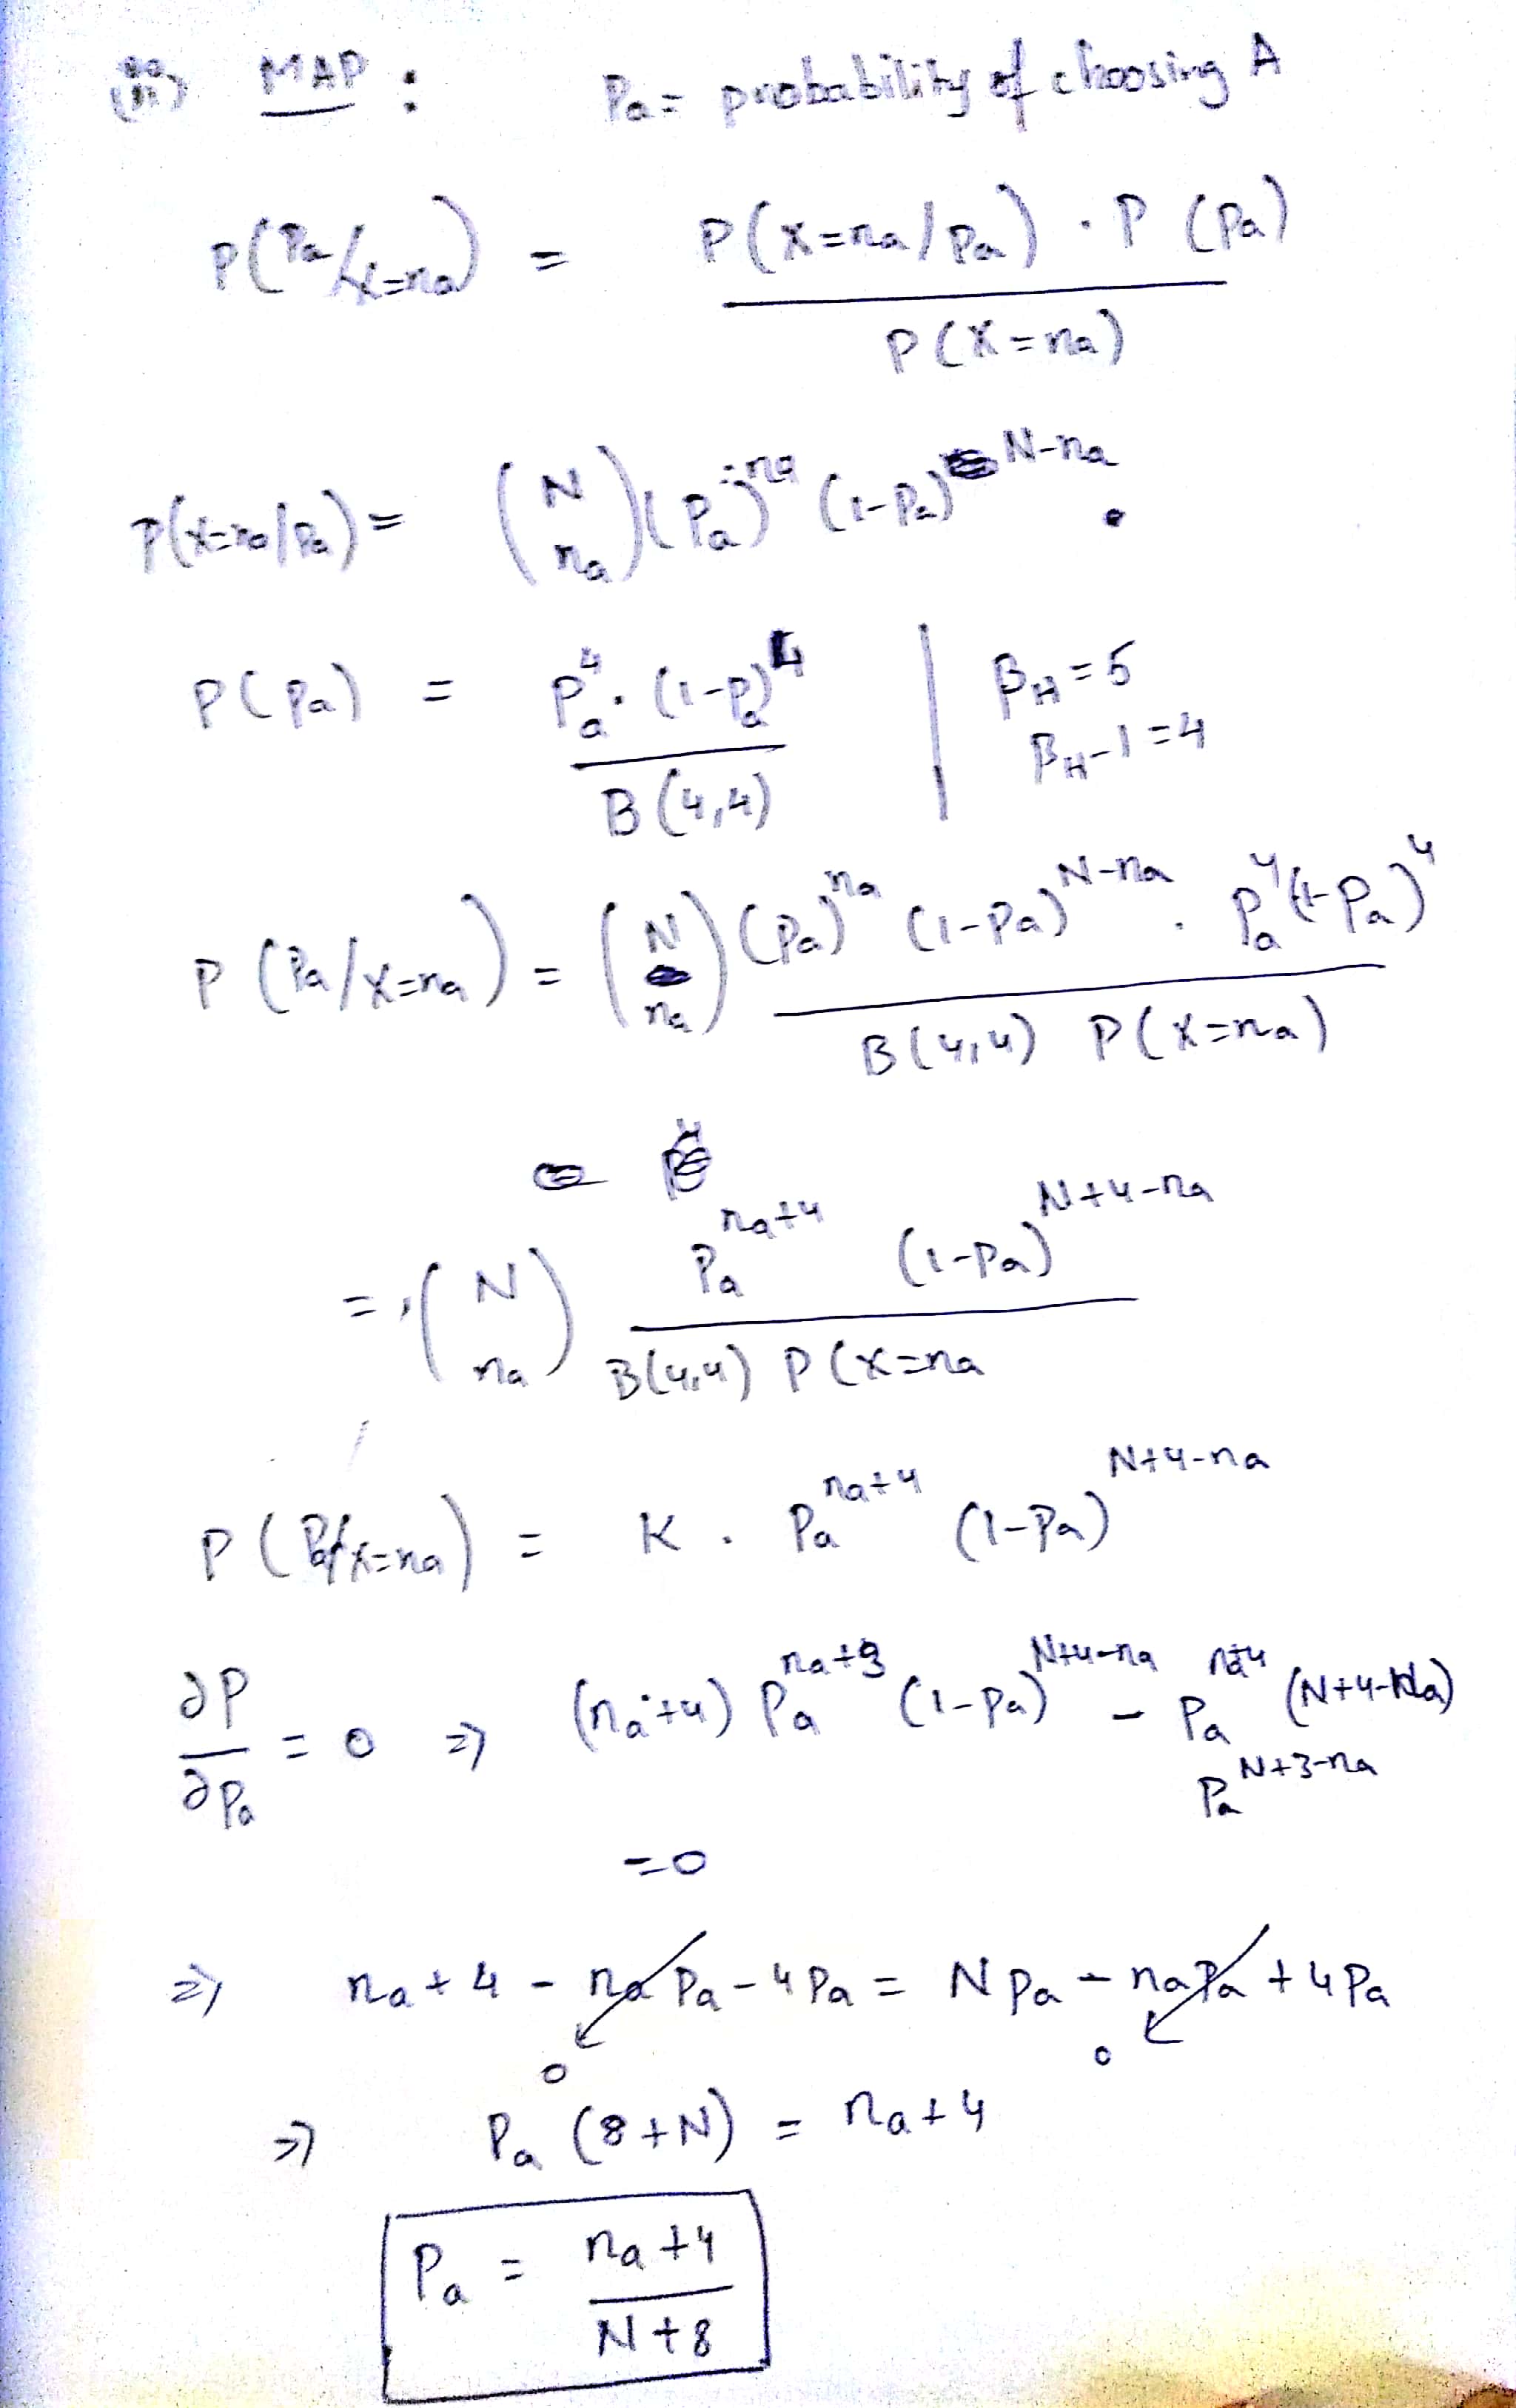 (ii) MAP : Pa = probability of choosing A
P(Pa/X=na) = P(X=na/Pa) · P(Pa) / P(X=na)
P(X=na/Pa) = (N na) (Pa)^na (1-Pa)^N-na
P(Pa) = Pa^4 · (1-Pa)^4 / B(4,4) | βH = 5
βH-1 = 4
P(Pa/X=na) = (N na) (Pa)^na (1-Pa)^N-na · Pa^4 (1-Pa)^4 / B(4,4) P(X=na)
= (N na) Pa^na+4 (1-Pa)^N+4-na / B(4,4) P(X=na
P(Pa/X=na) = K . Pa^na+4 (1-Pa)^N+4-na
∂P/∂Pa = 0 ⇒ (na+4) Pa^na+3 (1-Pa)^N+4-na - Pa^na+4 (N+4-na)
Pa^N+3-na
=0
⇒ na + 4 - na Pa - 4Pa = N Pa - na Pa + 4Pa
0 0
⇒ Pa (8+N) = na+4
Pa = na+4 / N+8